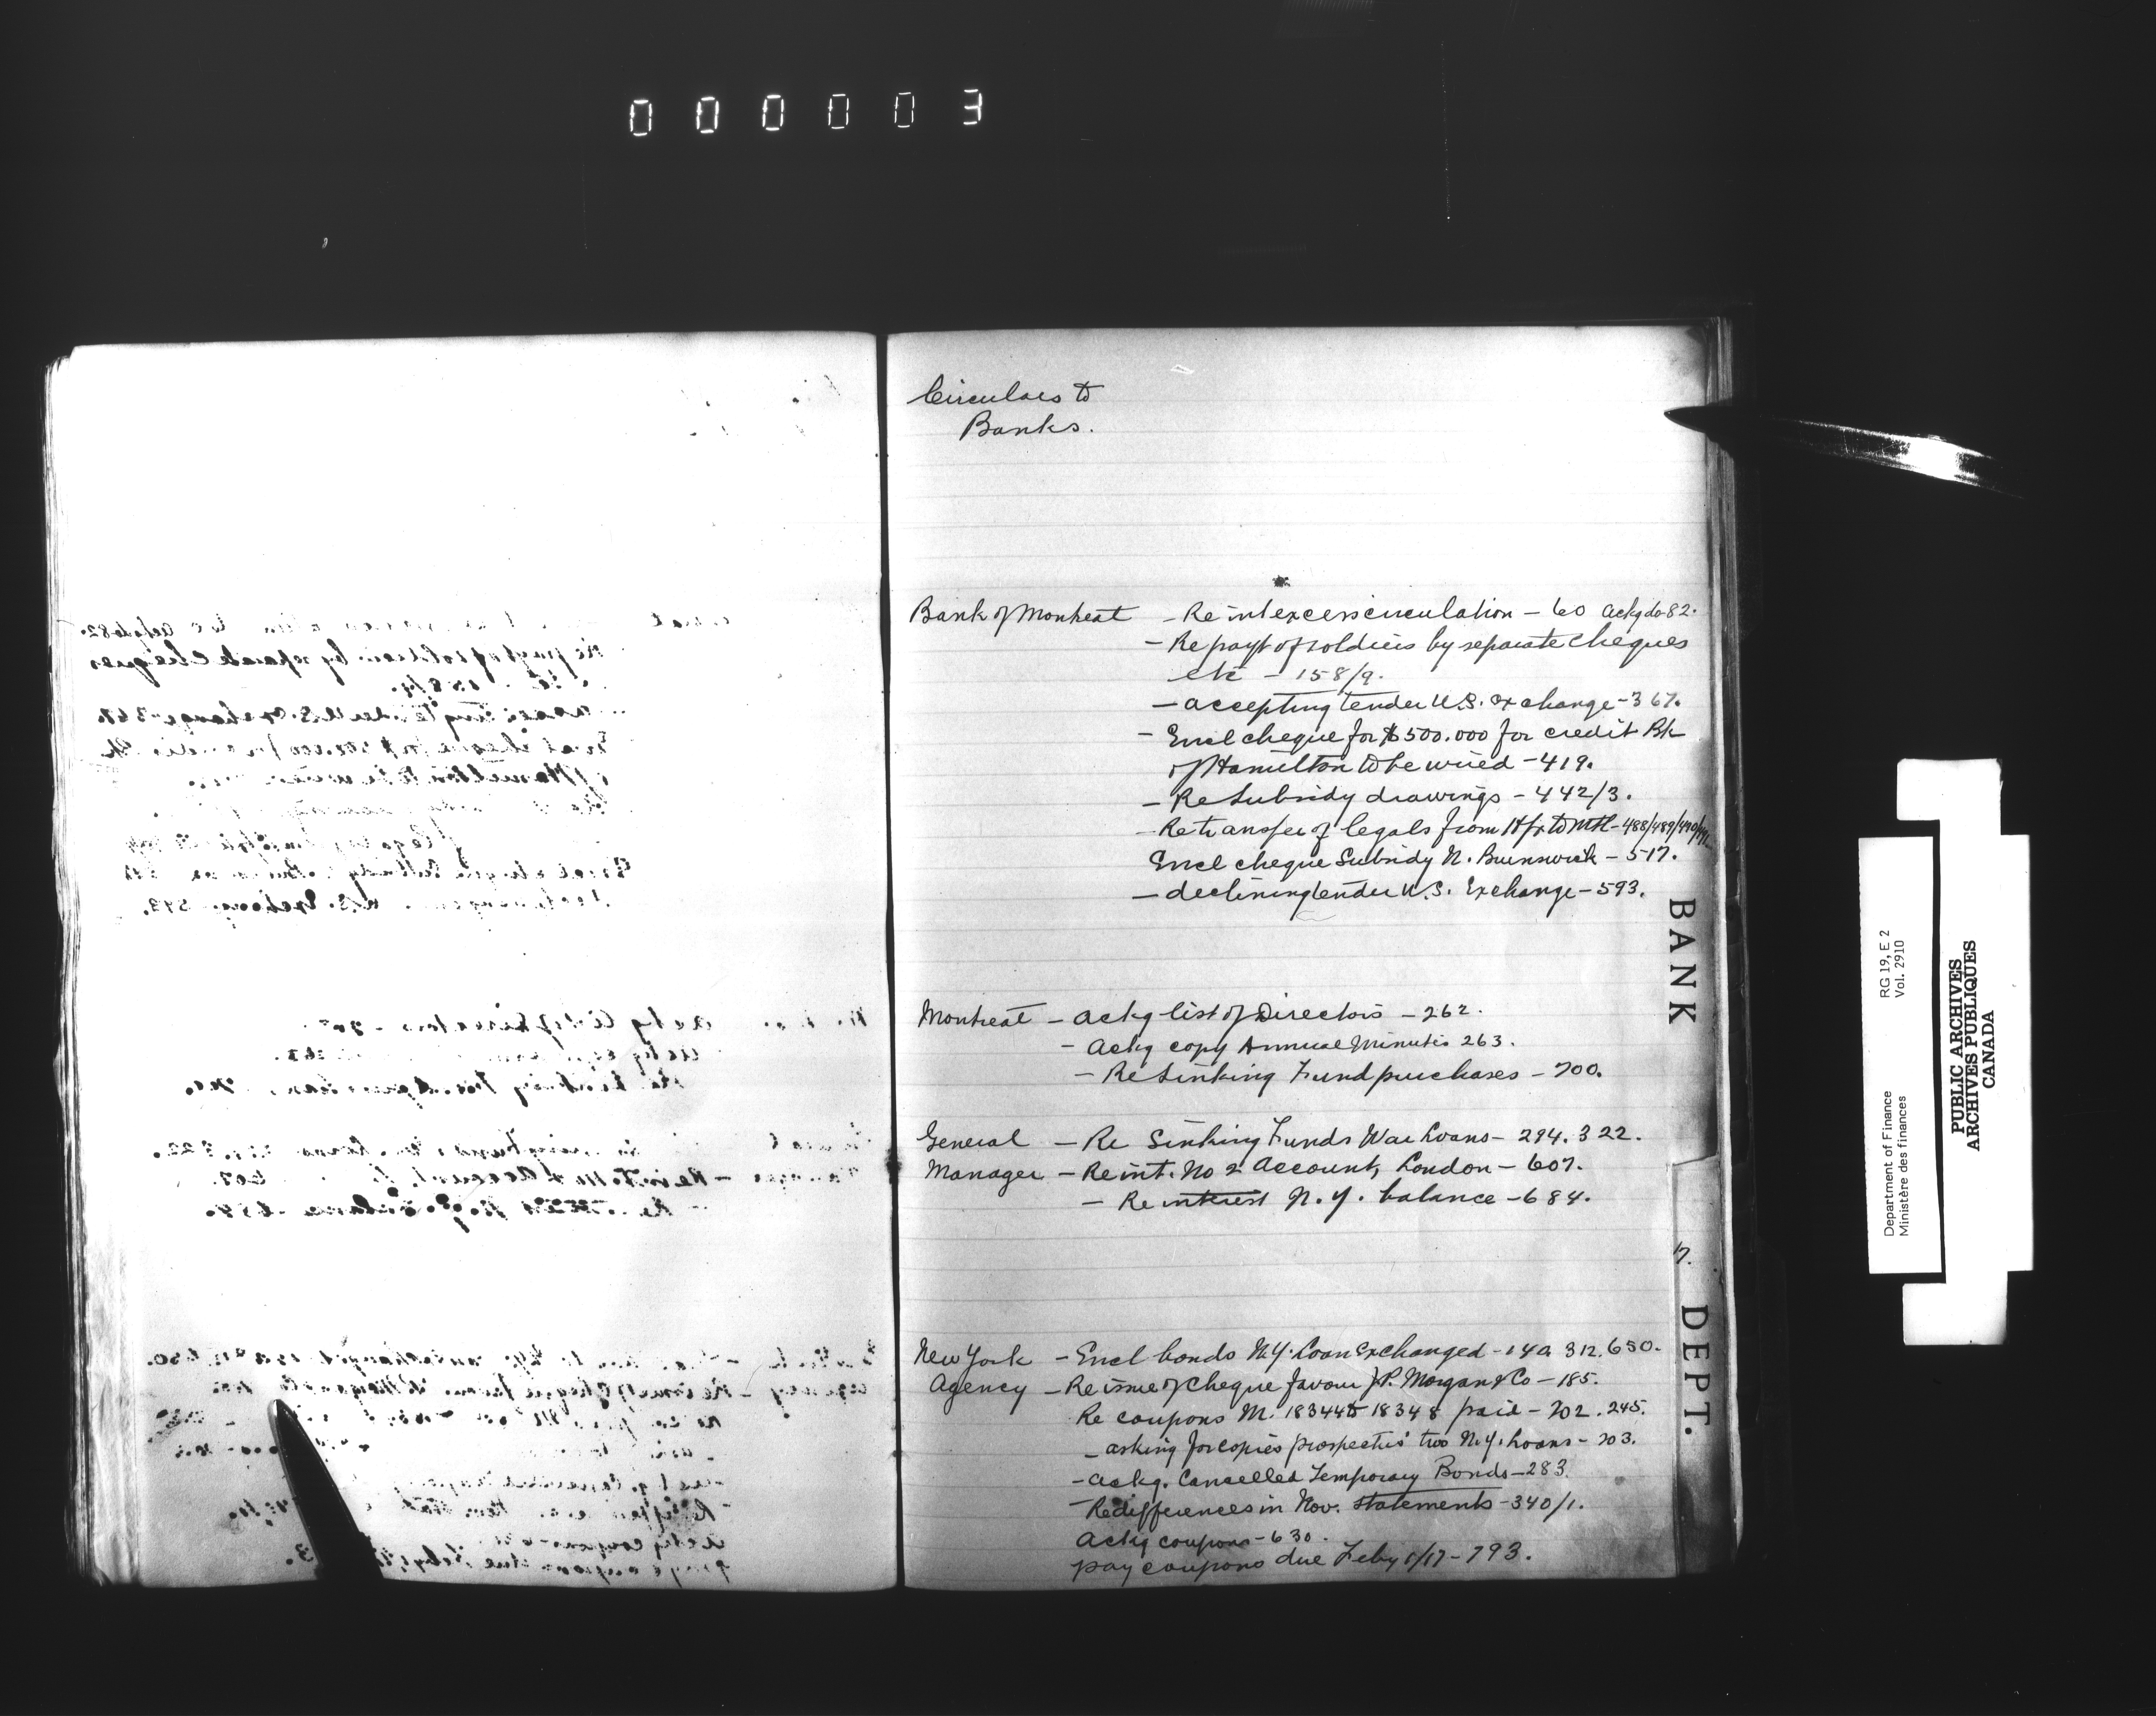 000003
Circulars to
Banks.
Bank of Montreal - Re int excess circulation - 60 ackg do 82.
- Re payt of soldiers by separate cheques
etc - 158/9.
- accepting tender U.S. Exchange - 367.
- Encl cheque for $500.000 for credit Bk
of Hamilton to be wired - 419.
- Re Subsidy drawings - 442/3.
- Re transfer of legals from Hfx to Mtl - 488/489/490/491
Encl cheque Subsidy N. Brunswick - 517.
- declining tender U.S. Exchange - 593.
Montreal - ackg list of Directors - 262.
- Ackg copy Annual Minutes 263.
- Re Sinking Fund purchases - 700.
General - Re Sinking Funds War Loans - 294. 322.
Manager - Re int. No 2 Account, London - 607.
- Re interest N.Y. balance - 684.
New York - Encl bonds N.Y. Loan Exchanged - 149 312. 650.
Agency - Re issue of cheque favour J.P. Morgan & Co - 185.
Re coupons M. 18344 to 18348 paid - 202. 245.
- asking for copies prospectus two N.Y. Loans - 203.
- ackg. Cancelled Temporary Bonds - 283.
- Re differences in Nov. statements - 340/1.
Ackg coupons - 630.
pay coupons due Feby 1/17 - 793.
BANK
17.
DEPT.
RG 19, E 2
Vol. 2910
Department of Finance
Ministère des finances
PUBLIC ARCHIVES
ARCHIVES PUBLIQUES
CANADA